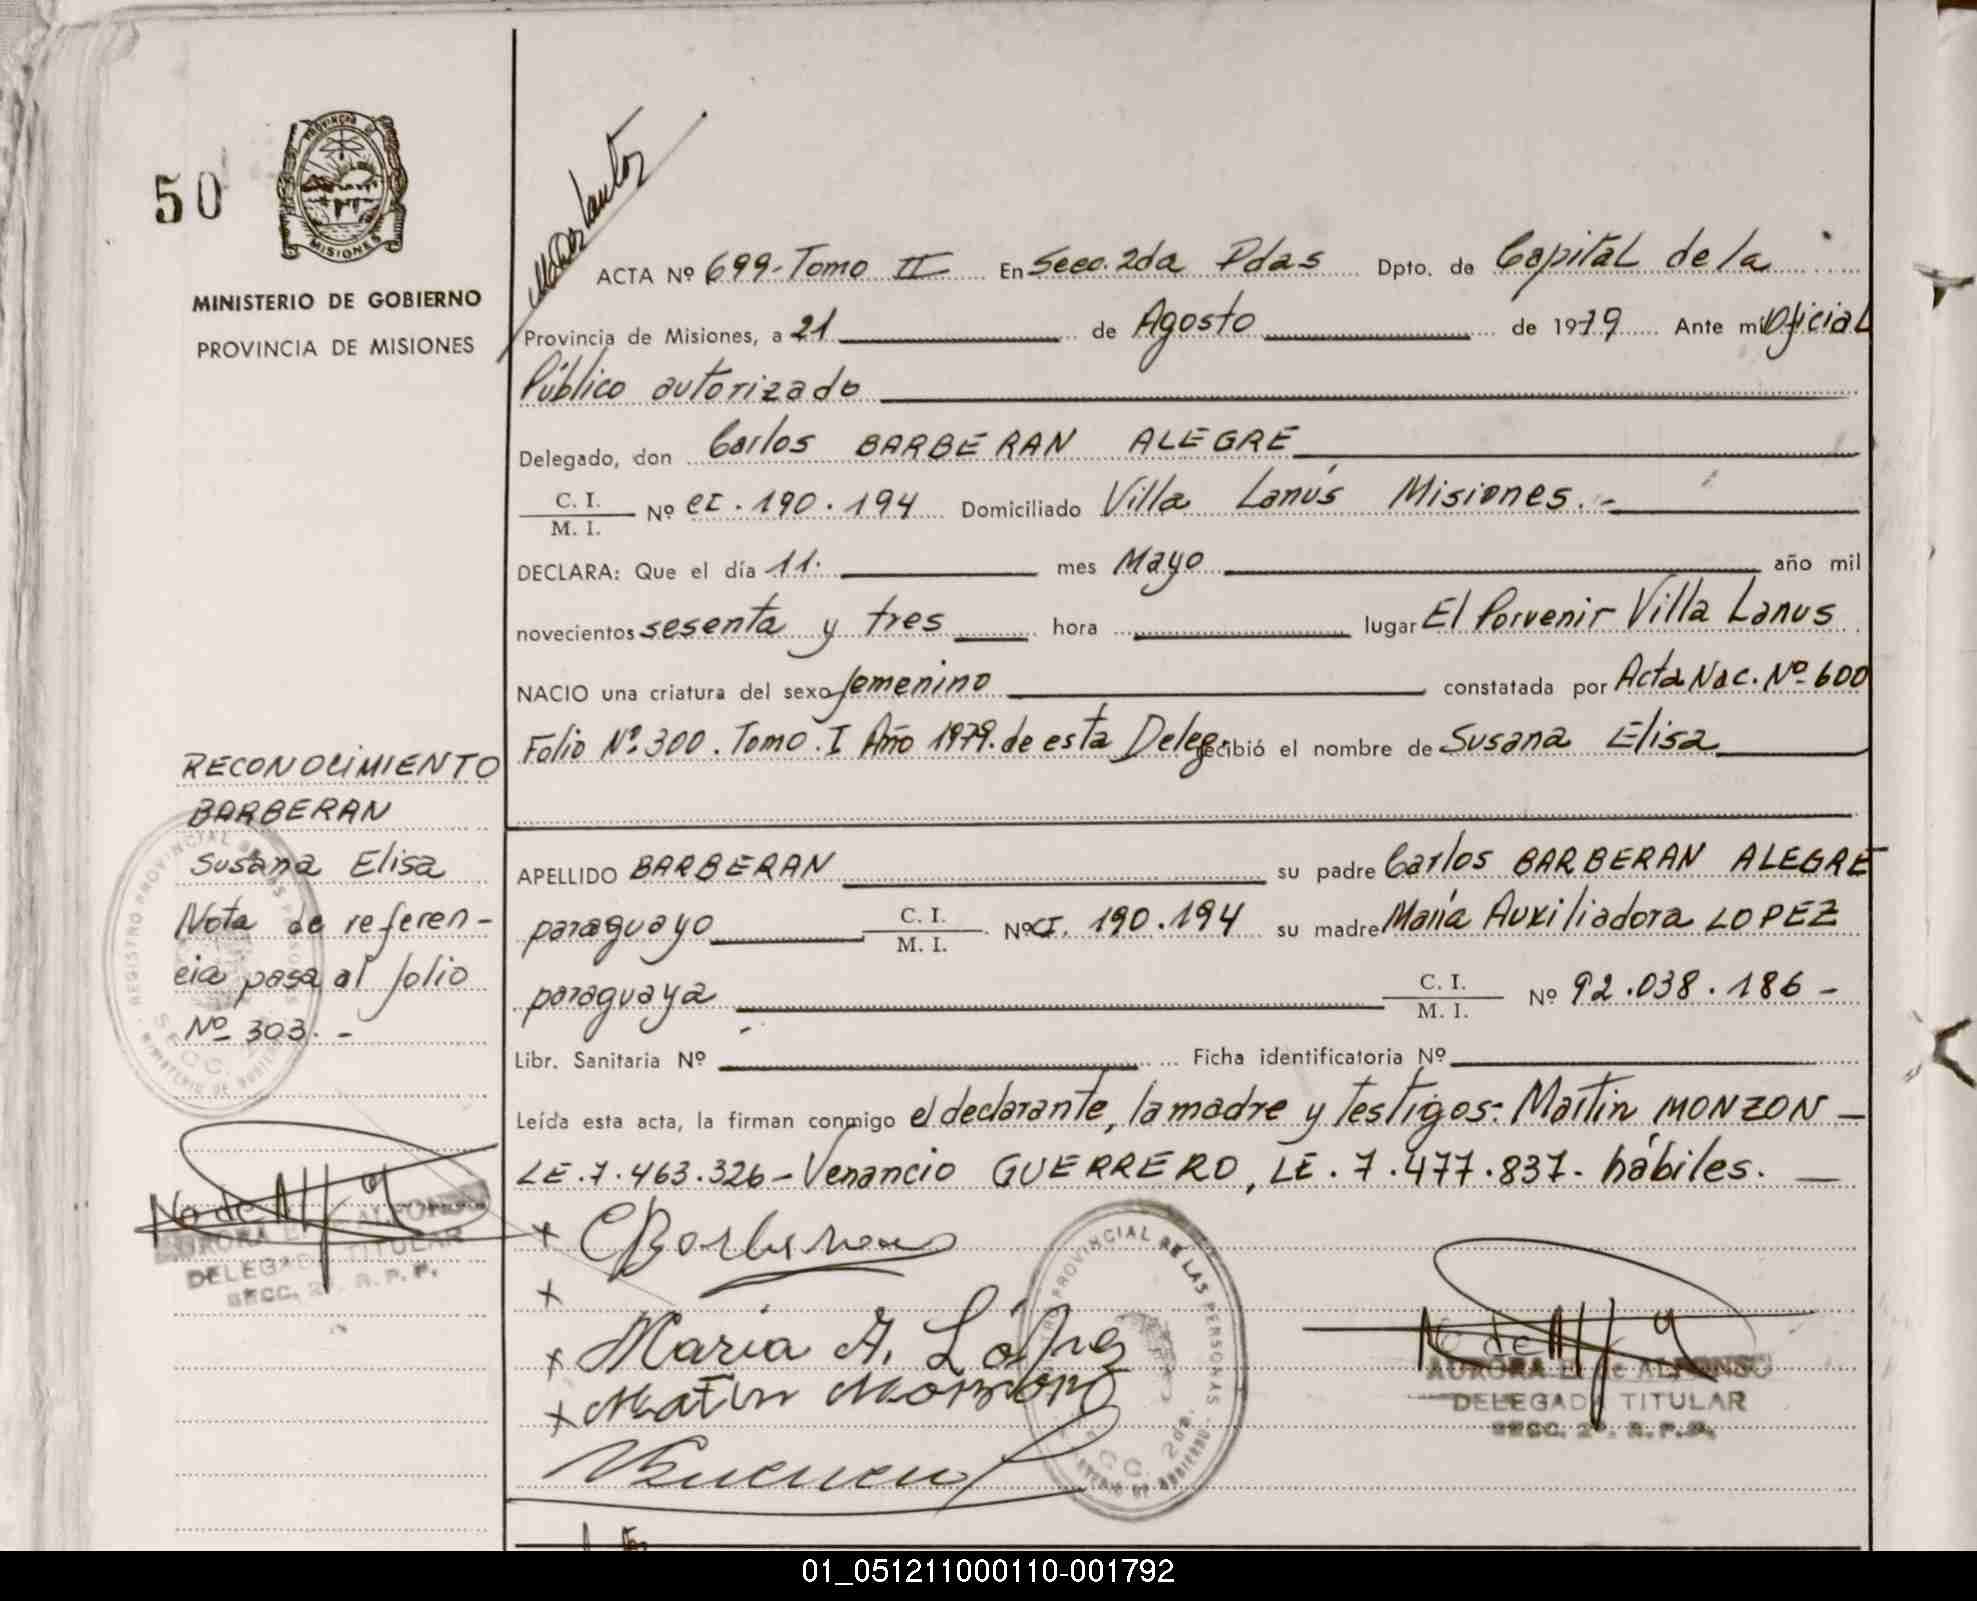 50
PROVINCIA DE
MISIONES
MINISTERIO DE GOBIERNO
PROVINCIA DE MISIONES
ACTA Nº 699-Tomo II En Secc. 2da Pdas Dpto. de Capital de la
Provincia de Misiones, a 21 de Agosto de 1979 Ante mi Oficial
Público autorizado
Delegado, don Carlos BARBERAN ALEGRE
C. I.
M. I. Nº CI. 190.194 Domiciliado Villa Lanús Misiones.-
DECLARA: Que el día 11. mes Mayo año mil
novecientos sesenta y tres hora lugar El Porvenir Villa Lanus
NACIO una criatura del sexo femenino constatada por Acta Nac. Nº 600
Folio Nº 300. Tomo. I Año 1979. de esta Deleg. recibió el nombre de Susana Elisa
RECONOCIMIENTO
BARBERAN
Susana Elisa
Nota de referen-
cia pasa al folio
Nº 303.-
APELLIDO BARBERAN su padre Carlos BARBERAN ALEGRE
paraguayo C. I.
M. I. Nº CI. 190.194 su madre María Auxiliadora LOPEZ
paraguaya C. I.
M. I. Nº 92.038.186-
Libr. Sanitaria Nº Ficha identificatoria Nº
Leída esta acta, la firman conmigo el declarante, la madre y testigos: Martin MONZON -
LE.7.463.326-Venancio GUERRERO, LE.7.477.837. hábiles.
x CBarberan
x
x Maria A. López
x Matin Monzon
REGISTRO PROVINCIAL DE LAS PERSONAS
SECC. 2da.
MINISTERIO DE GOBIERNO
AURORA E. de ALFONSO
DELEGADA TITULAR
SECC. 2ª. R.P.P.
REGISTRO PROVINCIAL DE LAS PERSONAS
SECC.
MINISTERIO DE GOBIERNO
AURORA E. de ALFONSO
DELEGADA TITULAR
SECC. 2ª. R.P.P.
01_051211000110-001792